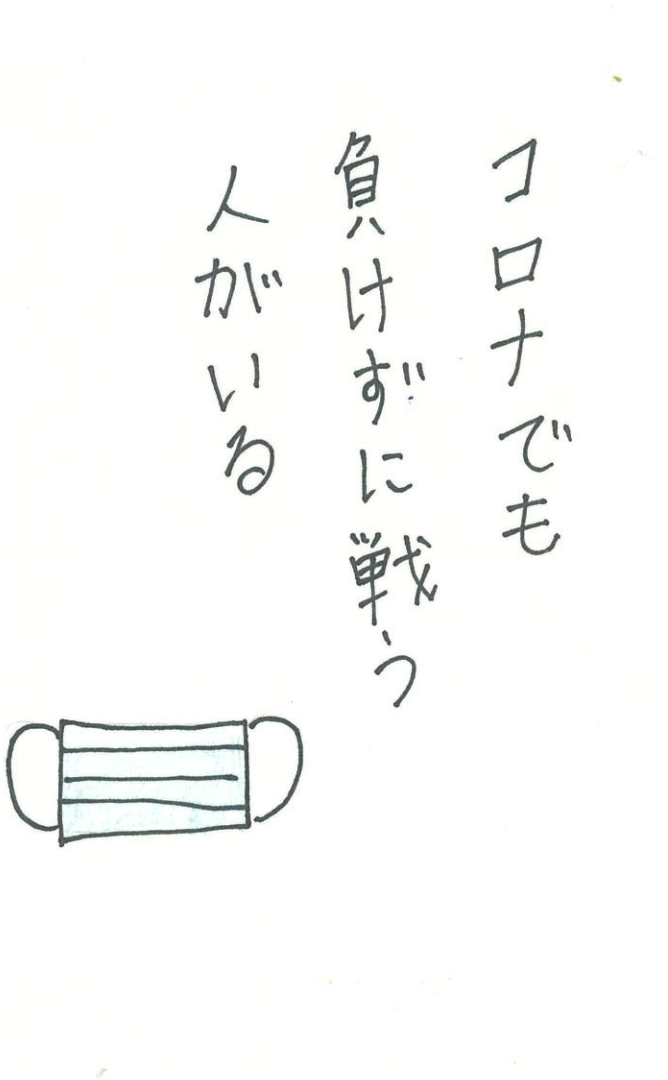 コロナでも
負けずに戦う
人がいる